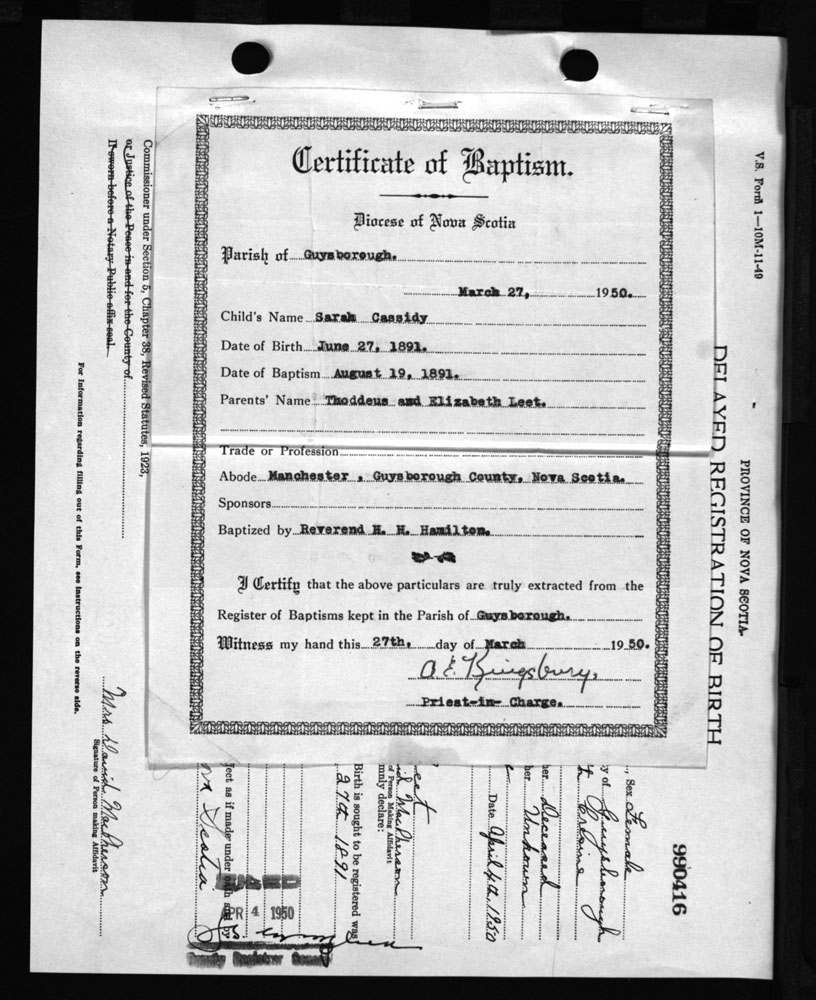 Certificate of Baptism.
Diocese of Nova Scotia
Parish of Guysborough.
March 27, 1950.
Child's Name Sarah Cassidy
Date of Birth June 27, 1891.
Date of Baptism August 19, 1891.
Parents' Name Thoddeus and Elizabeth Leet.
Trade or Profession
Abode Manchester , Guysborough County, Nova Scotia.
Sponsors
Baptized by Reverend H. H. Hamilton.
I Certify that the above particulars are truly extracted from the
Register of Baptisms kept in the Parish of Guysborough.
Witness my hand this 27th, day of March 1950.
A E. Kingsbury,
Priest-in- Charge.
V.S. Form 1—10M-11-49
PROVINCE OF NOVA SCOTIA
DELAYED REGISTRATION OF BIRTH
990416
Sex Female
y of Guysborough
Deceased
Unknown
Date April 4th, 1950
eet
id MacPherson
of Person Making Affidavit
mnly declare:
Birth is sought to be registered was
27th 1891
ject as if made under oath and by
va Scotia
APR 4 1950
Deputy Registrar General
Commissioner under Section 5, Chapter 38, Revised Statutes, 1923,
or Justice of the Peace in and for the County of
If sworn before a Notary Public affix seal.
Mrs. David MacPherson
Signature of Person making Affidavit
For information regarding filling out of this Form, see instructions on the reverse side.